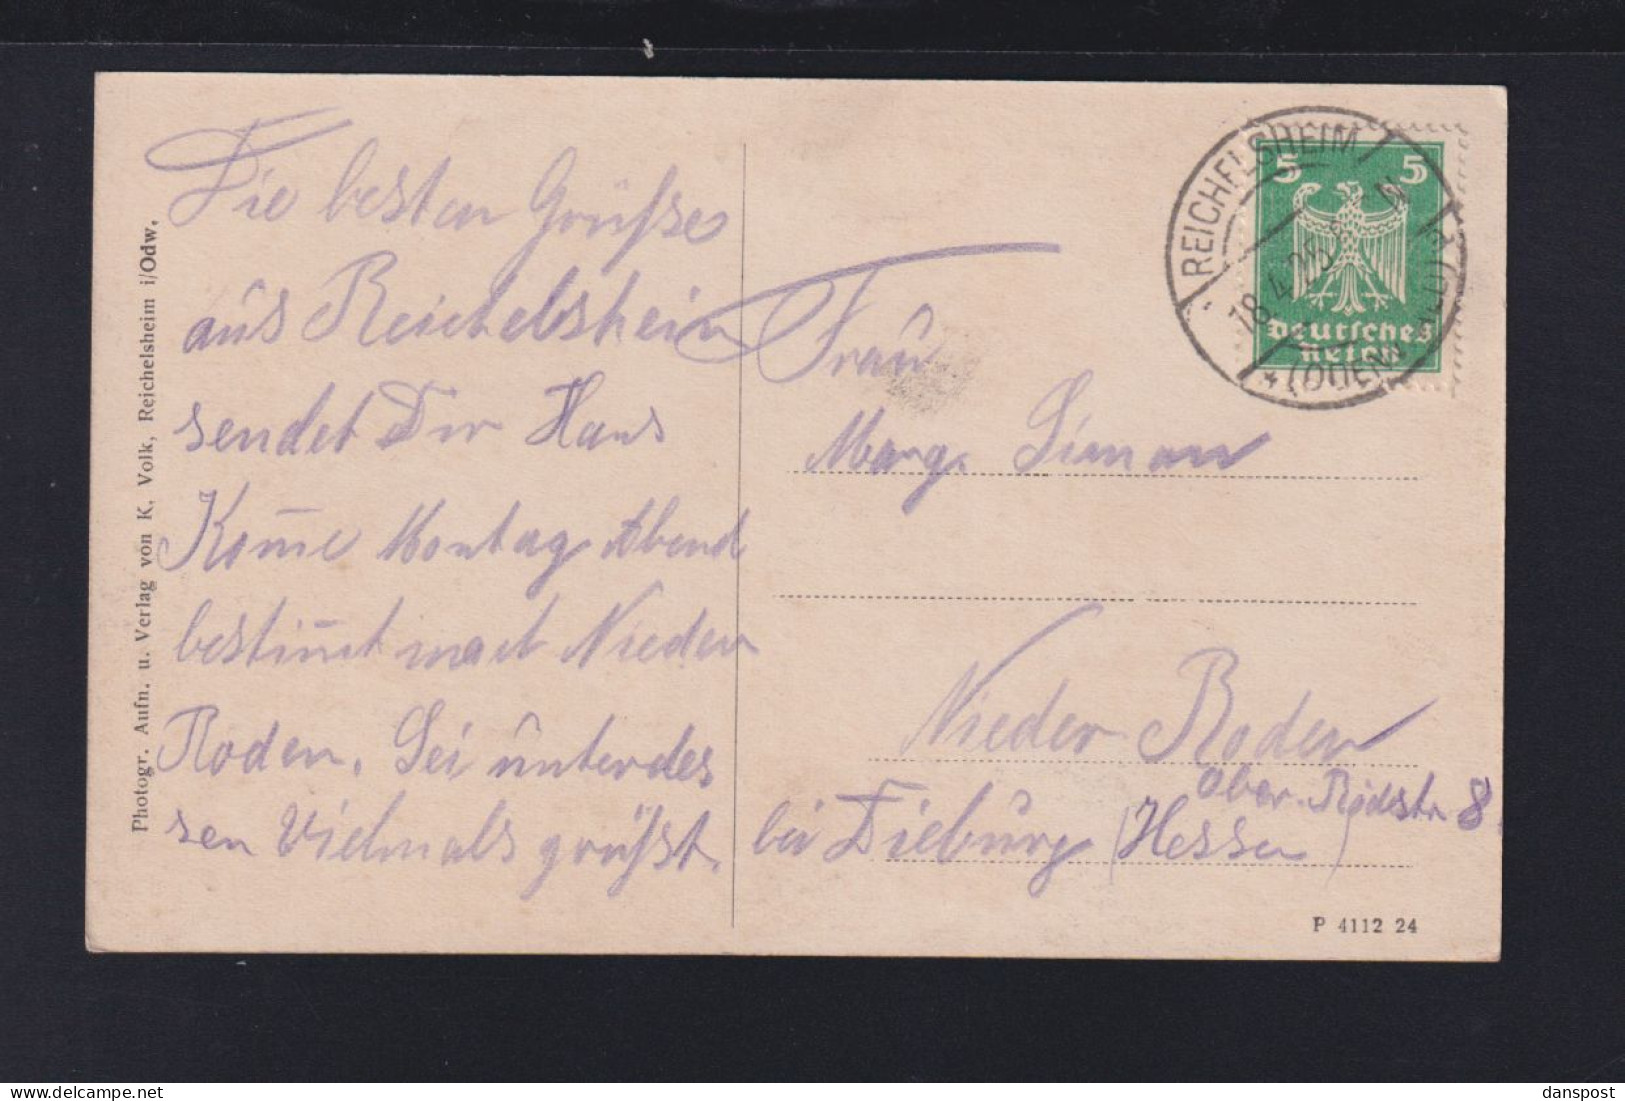 Die besten Grüsse
aus Reichelsheim
sendet Dir Hans
Kom̅e Montag Abend
bestim̅t nach Nieder
Roden. Sei unterdes
sen Vielmals grüsst.
Photogr. Aufn. u. Verlag von K. Volk, Reichelsheim i/Odw.
REICHELSHEIM
18.4.25
(ODENWALD)
5 5
Deutsches
Reich
Frau
Marg. Simon
Nieder Roden
Ober-Rodstr 8
bei Dieburg (Hessen)
P 4112 24
danspost